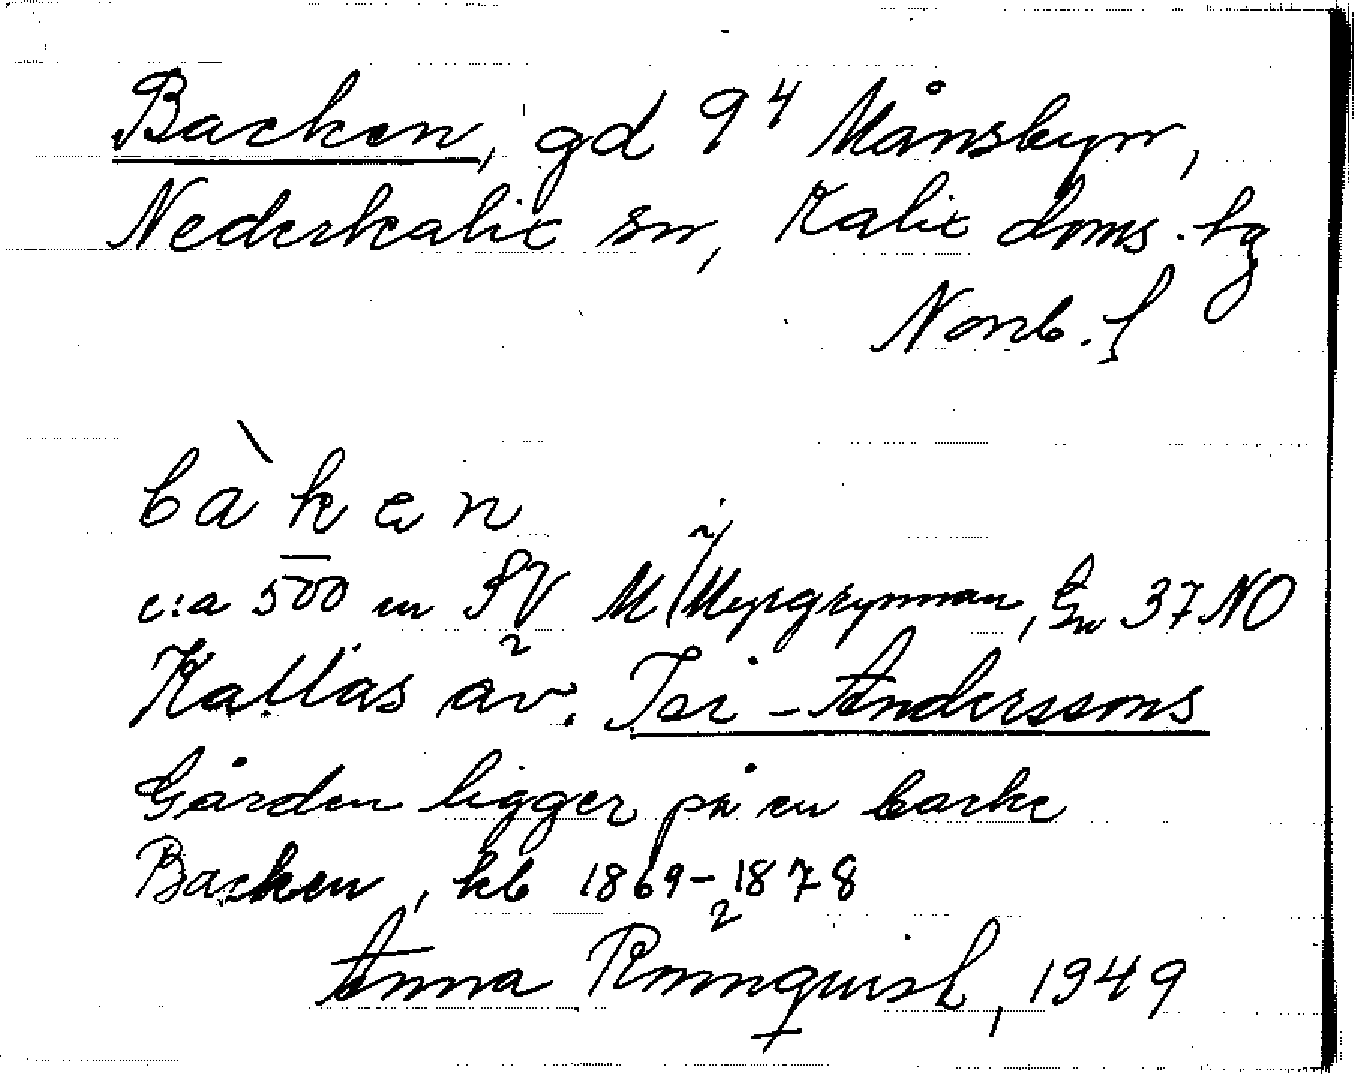 Backen, gd 9⁴ Månsbyn,
Nederkalix sn, Kalix doms. tg
Norrb. l
bàken
c:a 500 m SV M Myrgrynnan, 37 NO
Kallas av. Isr-Anderssons
Gården ligger på en backe
Backen, kb 1869-1878
Anna Rönnquist, 1949